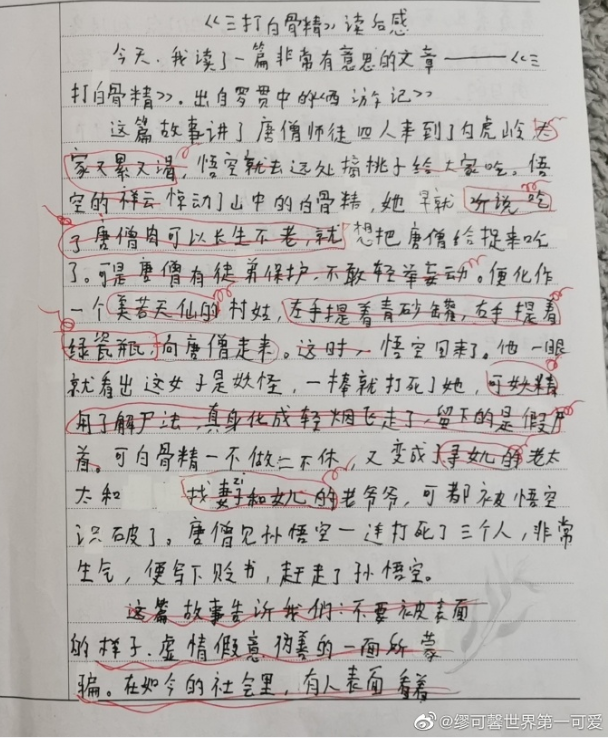 《三打白骨精》读后感
今天,我读了一篇非常有意思的文章——《三
打白骨精》,出自罗贯中的《西游记》
这篇故事讲了唐僧师徒四人来到了白虎岭,大
家又累又渴,悟空就去远处摘桃子给大家吃。悟
空的祥云惊动了山中的白骨精,她早就听说吃
了唐僧肉可以长生不老,就想把唐僧给捉来吃
了。可是唐僧有徒弟保护,不敢轻举妄动。便化作
一个美若天仙的村姑,左手提着青砂罐,右手提着
绿瓷瓶,向唐僧走来。这时,悟空回来了。他一眼
就看出这女子是妖怪,一棒就打死了她,可妖精
用了解尸法,真身化成轻烟飞走了,留下的是假尸
首。可白骨精一不做二不休,又变成了寻女儿的老太
太和 找妻子zi和女儿的老爷爷,可都被悟空
识破了。唐僧见孙悟空一连打死了三个人,非常
生气,便写下贬书,赶走了孙悟空。
这篇故事告诉我们:不要被表面
的样子、虚情假意伪善的一面所蒙
骗。在如今的社会里,有人表面看着
@缪可馨世界第一可爱